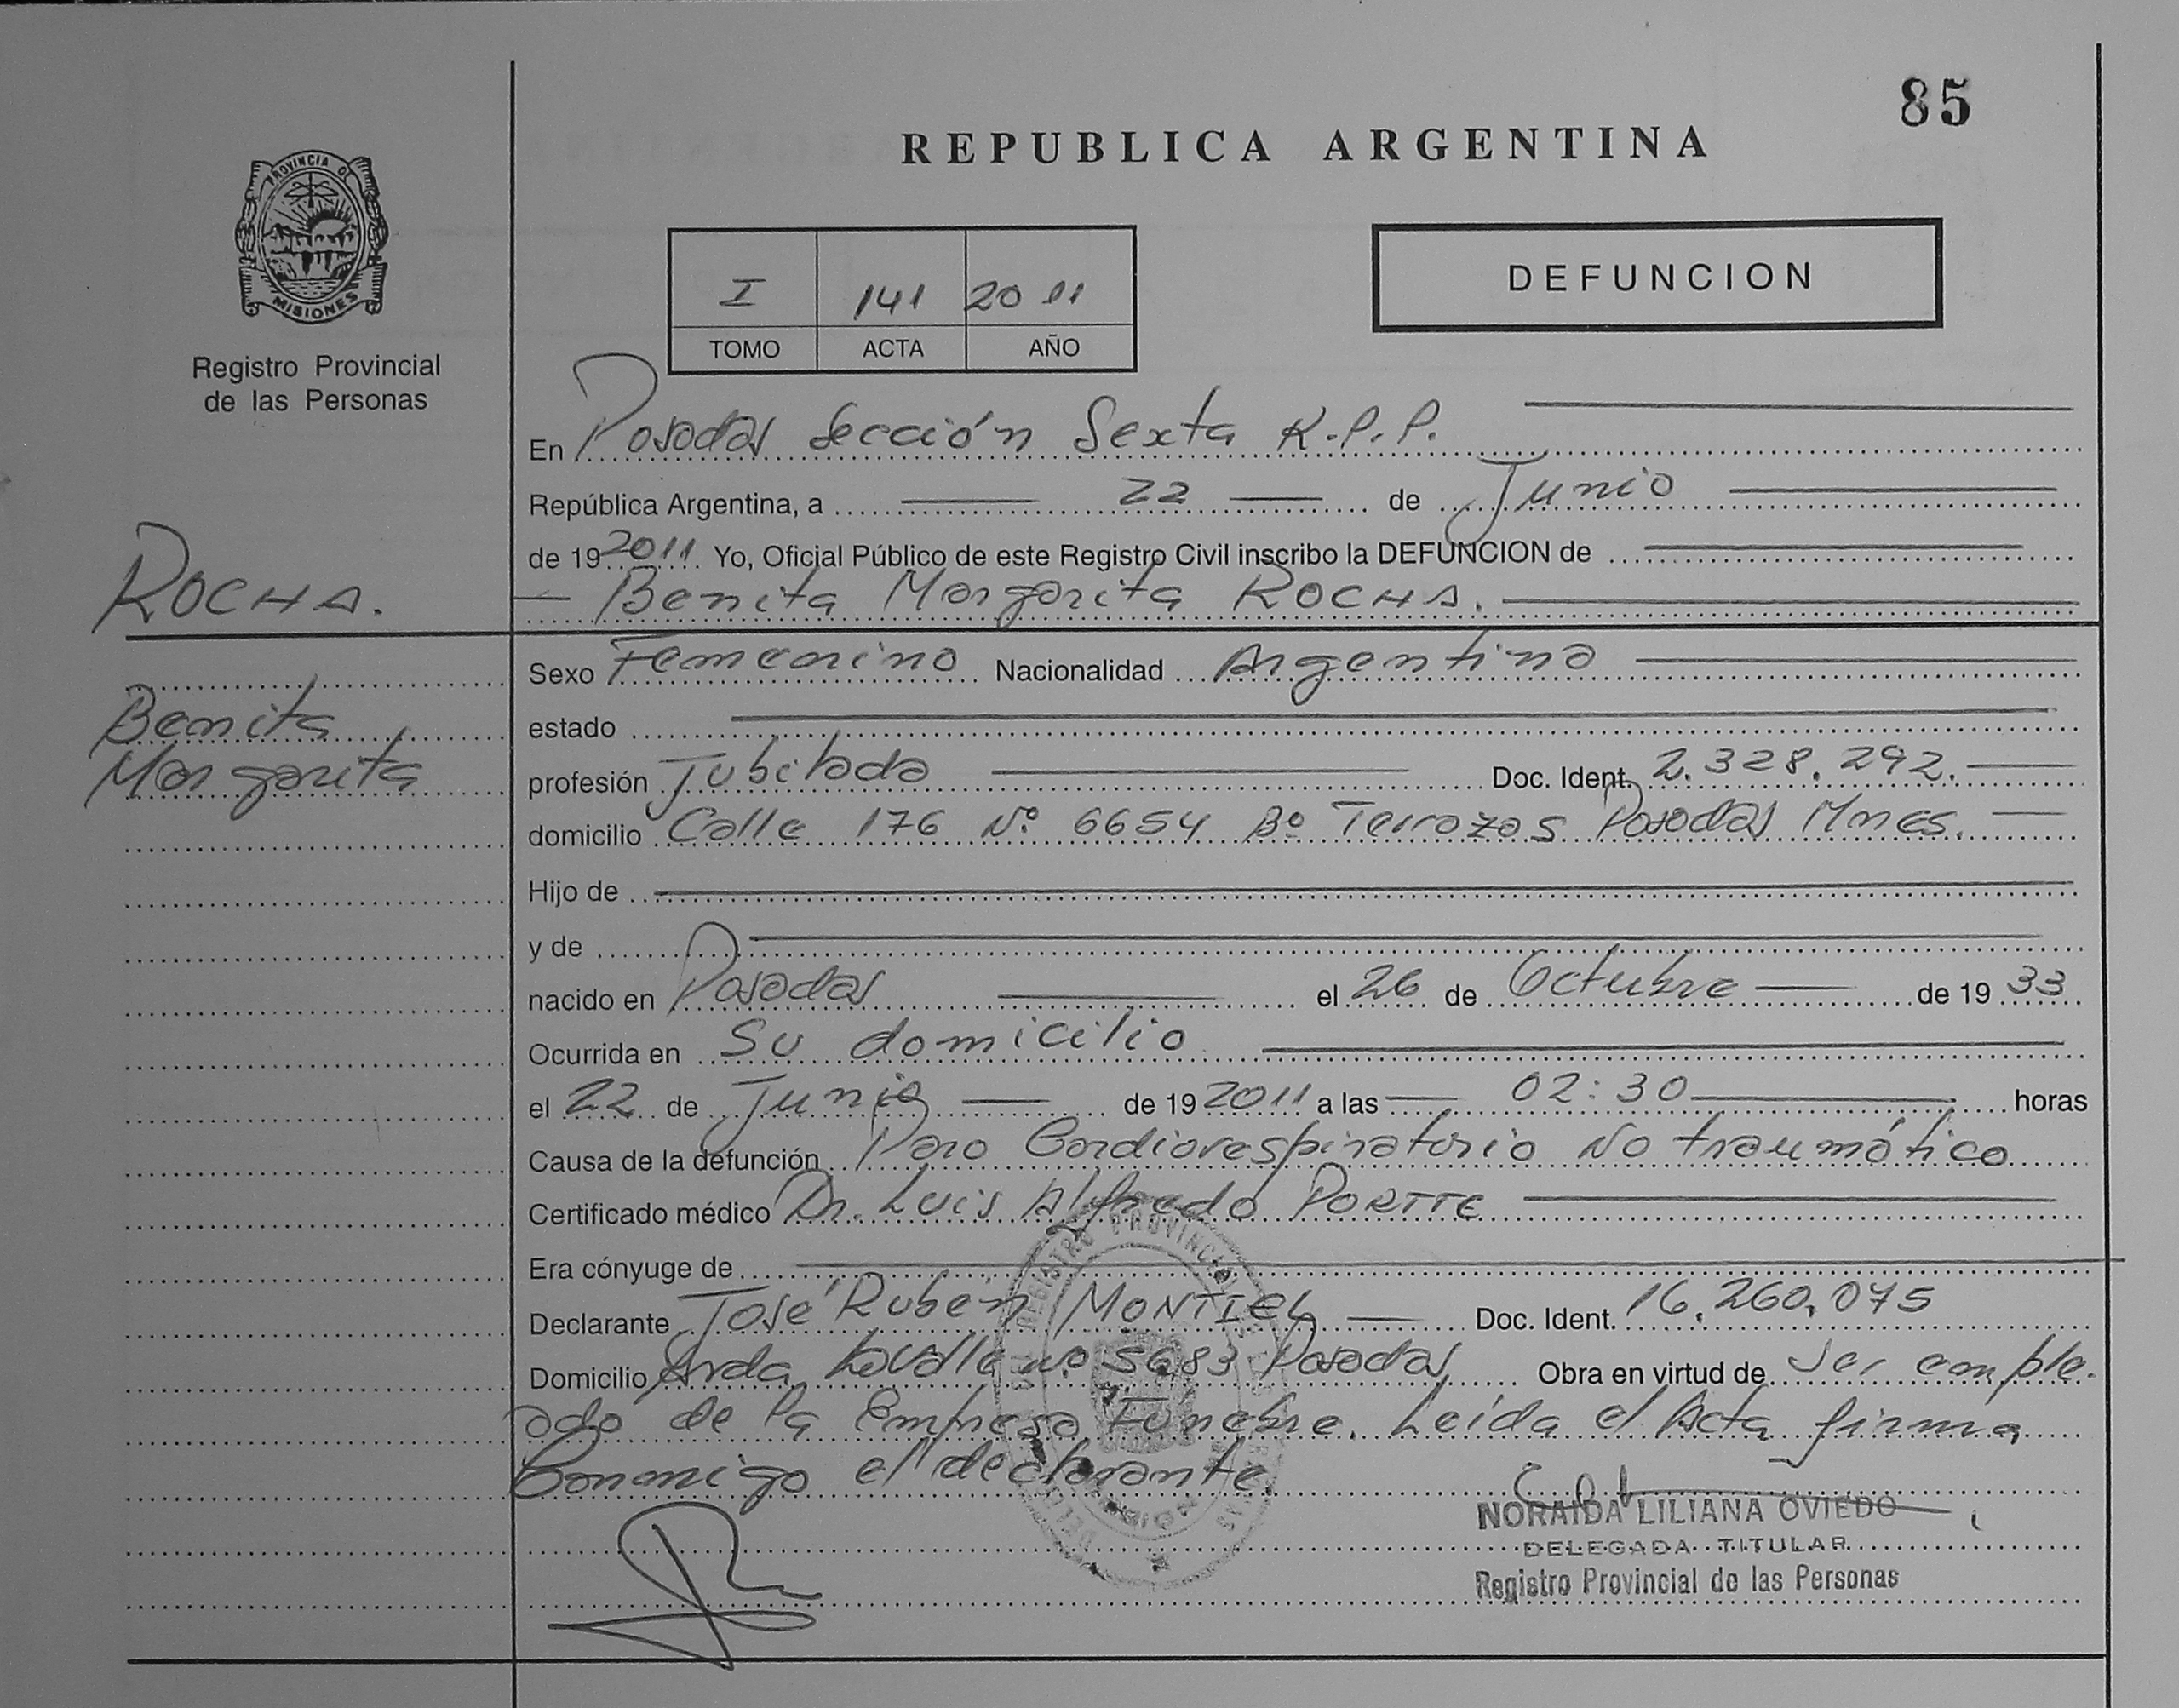 85
REPUBLICA ARGENTINA
PROVINCIA DE
MISIONES
Registro Provincial
de las Personas
I 141 2011
TOMO ACTA AÑO
DEFUNCION
En Posadas Sección Sexta R.P.P.
República Argentina, a 22 de Junio
de 19 2011 Yo, Oficial Público de este Registro Civil inscribo la DEFUNCION de
Benita Margarita ROCHA.
ROCHA.
Benita
Margarita
Sexo Femenino Nacionalidad Argentina
estado
profesión Jubilada Doc. Ident. 2.328.292.
domicilio Calle 176 Nº 6654 Bº Terrazas Posadas Mnes.
Hijo de
y de
nacido en Posadas el 26 de Octubre de 19 33
Ocurrida en Su domicilio
el 22 de Junio de 19 2011 a las 02:30 horas
Causa de la defunción Paro Cardiorespiratorio No traumático
Certificado médico Dr. Luis Alfredo PORTTE
Era cónyuge de
Declarante José Ruben MONTIEL Doc. Ident. 16.260.075
Domicilio Avda Lavalle nº 5683 Posadas Obra en virtud de Ser emple-
ado de la Empresa Fúnebre. Leída el Acta firma
Conmigo el declarante.
REGISTRO PROVINCIAL
NORAIDA LILIANA OVIEDO
DELEGADA TITULAR
Registro Provincial de las Personas